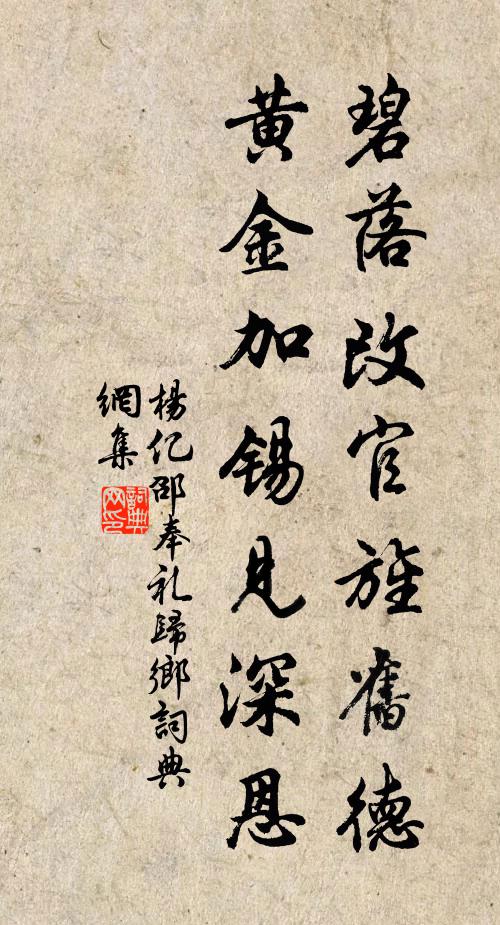 碧落改官旌舊德
黄金加錫見深恩
楊亿邵奉礼歸鄉詞典
網集
詞典网印